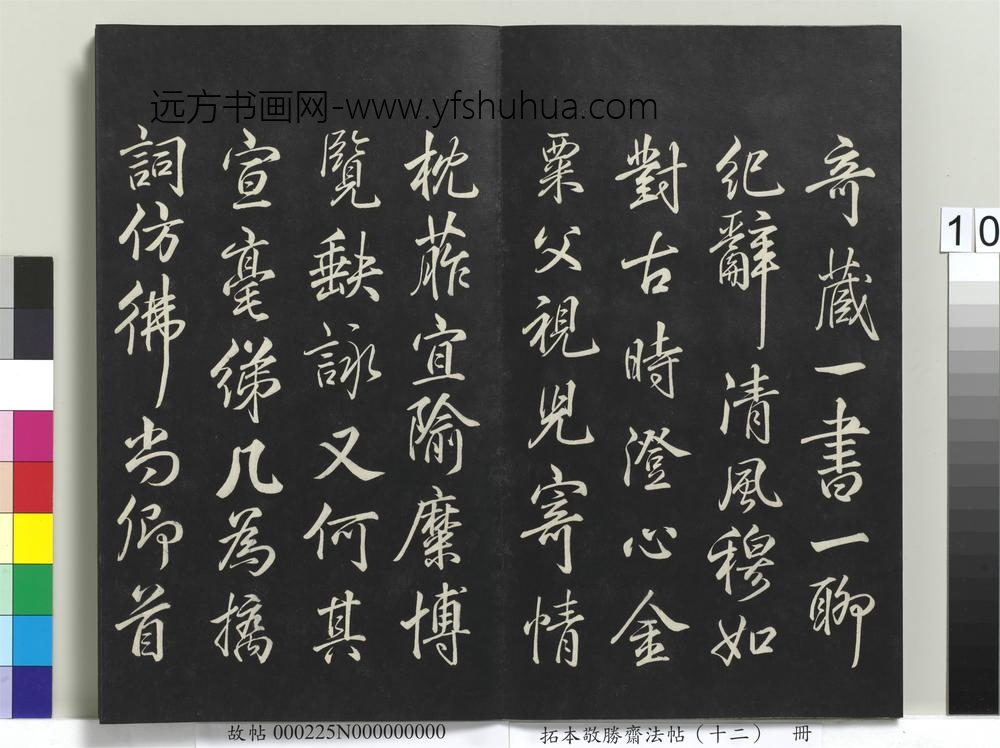 远方书画网-www.yfshuhua.com
奇藏一書一聊
紀辭清風穆如
對古時澄心金
粟父視兒寄情
枕葄宜隃糜博
覽缺詠又何其
宣毫綈几為摛
詞仿彿尚仰首
10
故帖 000225N000000000
拓本敬勝齋法帖（十二） 冊